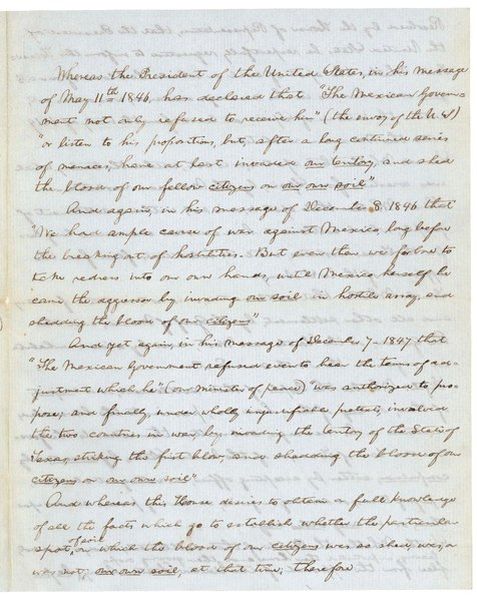 Whereas the President of the United States, in his message
of May 11th 1846, has declared that "The Mexican Govern-
ment not only refused to receive him" (the envoy of the U.S.)
"or listen to his propositions, but, after a long continued series
of menaces, have at last invaded our teritory, and shed
the blood of our fellow citizens on our own soil"
And again, in his message of December 8, 1846 that
"We had ample cause of war against Mexico, long before
the breaking out of hostilities. But even then we forbore to
take redress into our own hands, until Mexico herself be-
came the aggressor by invading our soil in hostile array, and
shedding the blood of our citizens"
And yet again, in his message of December 7- 1847 that
"The Mexican Government refused even to hear the terms of ad-
justment which he" (our minister of peace) "was authorized to pro-
pose; and finally, under wholly unjustifiable pretexts, involved
the two countries in war, by invading the teritory of the State of
Texas, striking the first blow, and shedding the blood of our
citizens on our own soil"
And whereas this House desires to obtain a full knowledge
of all the facts which go to establish whether the particular
spot of soil on which the blood of our citizens was so shed, was, or
was not, our own soil, at that time; therefore